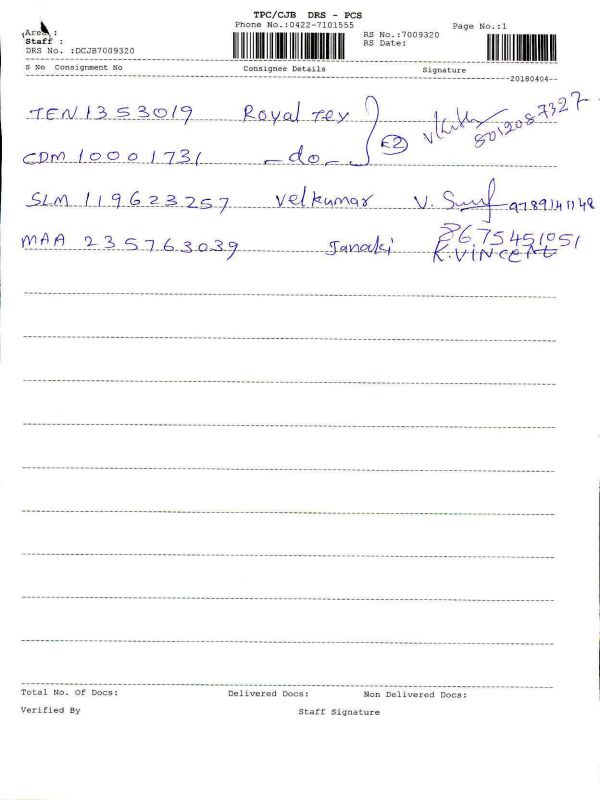 TPC/CJB DRS - PCS
Phone No.:0422-7101555
Page No.:1
Area :
Staff :
DRS No. :DCJB7009320
RS No.:7009320
RS Date:
S No Consignment No Consignee Details Signature
20180404
TEN 1353019 Royal Tex
8012087327
CDM 10001731 -do- 2
SLM 119623257 Velkumar V. 9789141148
MAA 235763039 Janaki 8675451051
K.VINCENT
Total No. Of Docs: Delivered Docs: Non Delivered Docs:
Verified By Staff Signature